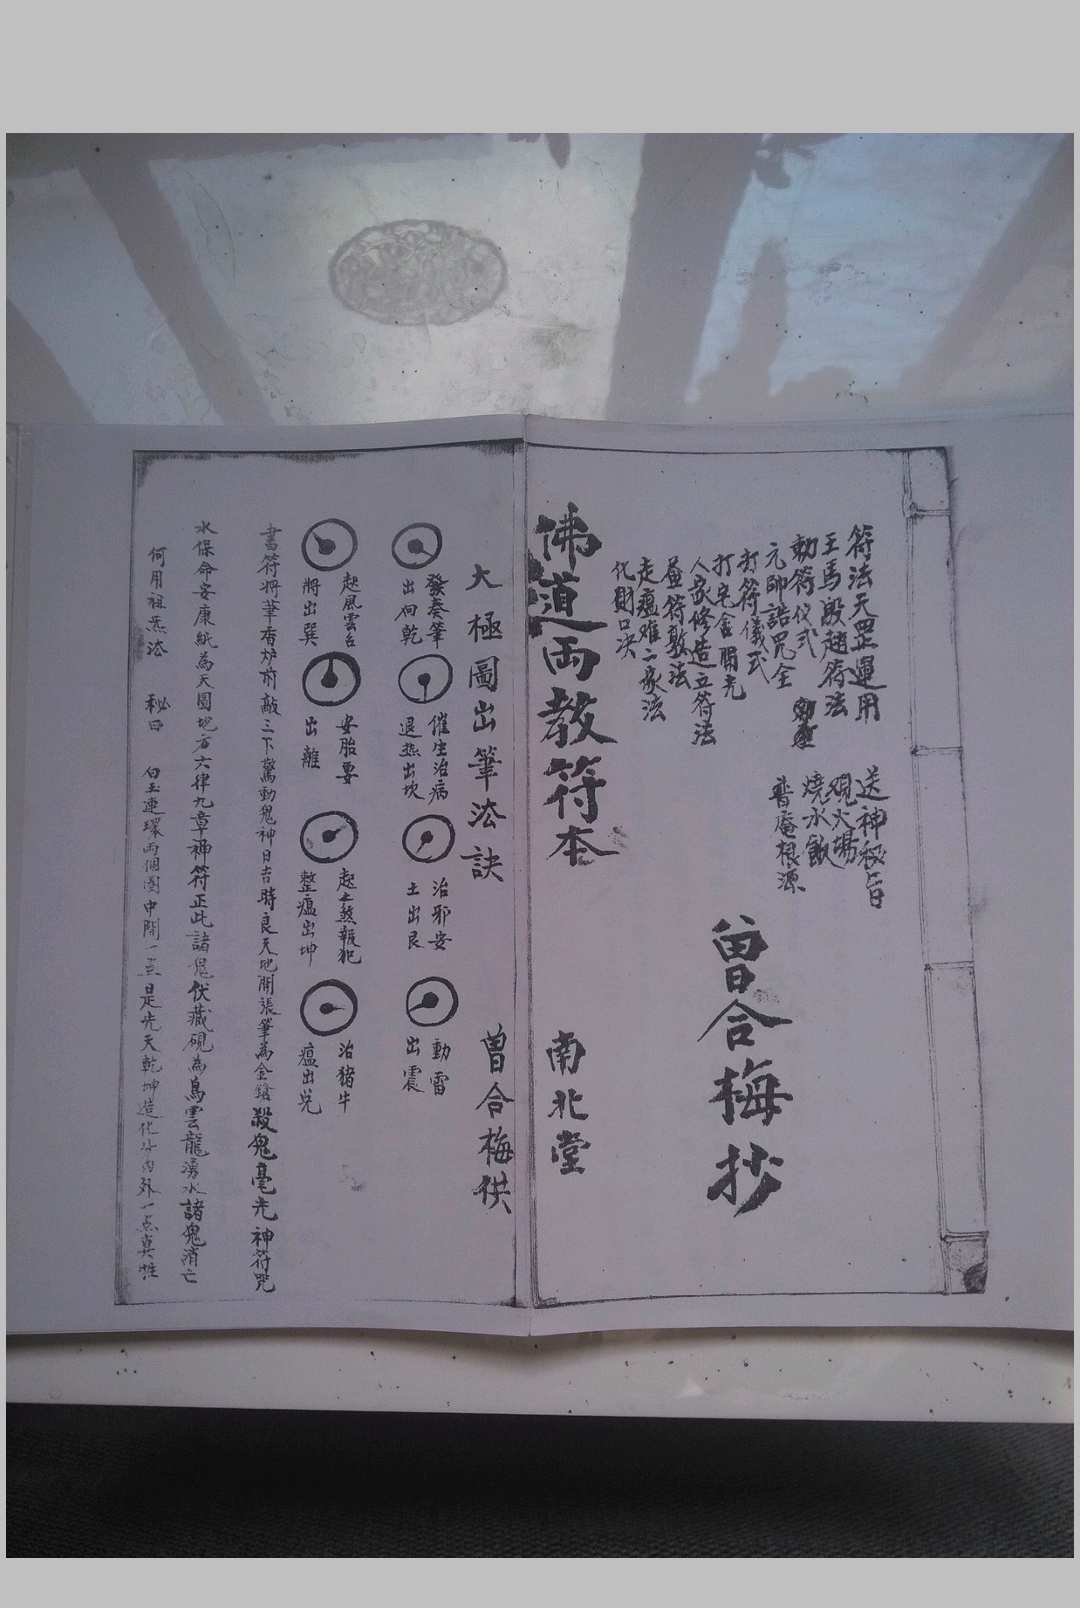 符法天罡運用
王馬殷趙符法
勅符仪式
元帥誥咒全
打符儀式
打宅舍開光
人家修造立符法
符敕法
走瘟难二家法
化财口决
送神秘旨
覌火場
燒水飯
普庵根源
曾合梅抄
佛道両教符本
南北堂
大極圖出筆法訣
曾合梅供
發奏筆
出向乾
催生治病
退热出坎
治邪安
土出艮
動雷
出震
起風雲台
將出巽
安胎要
出離
起土煞報犯
整瘟出坤
治猪牛
瘟出兑
書符將筆香炉前敲三下驚動鬼神日吉時良天地開張筆為金鎗殺鬼毫光神符咒
水保命安康紙為天圓地方六律九章神符正此諸鬼伏藏硯為烏雲龍湧水諸鬼消亡
何用祖炁法 秘曰 白玉連環両個圈中間一点是先天乾坤造化分内外一点真性